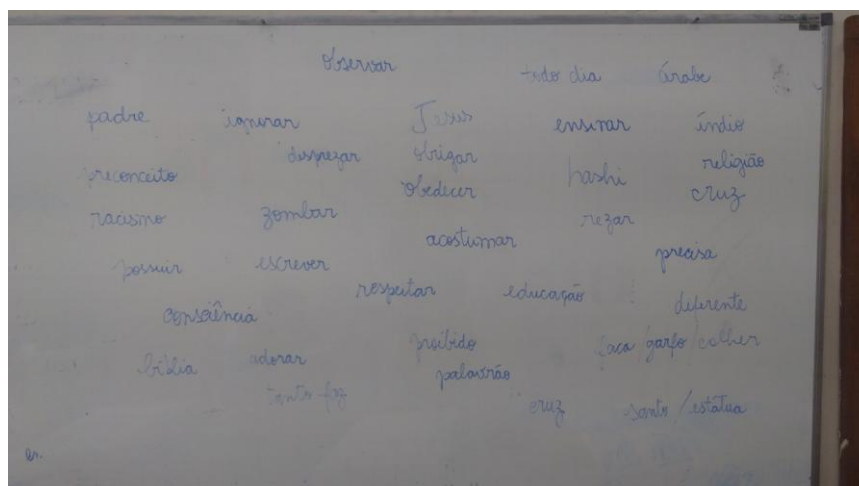 observar
todo dia árabe
padre ignorar Jesus ensinar índio
desprezar obrigar religião
preconceito obedecer hashi cruz
racismo zombar rezar
acostumar precisa
possuir escrever
respeitar educação diferente
consciência
proibido faca/garfo/colher
bíblia adorar palavrão
tanto faz cruz santo/estátua